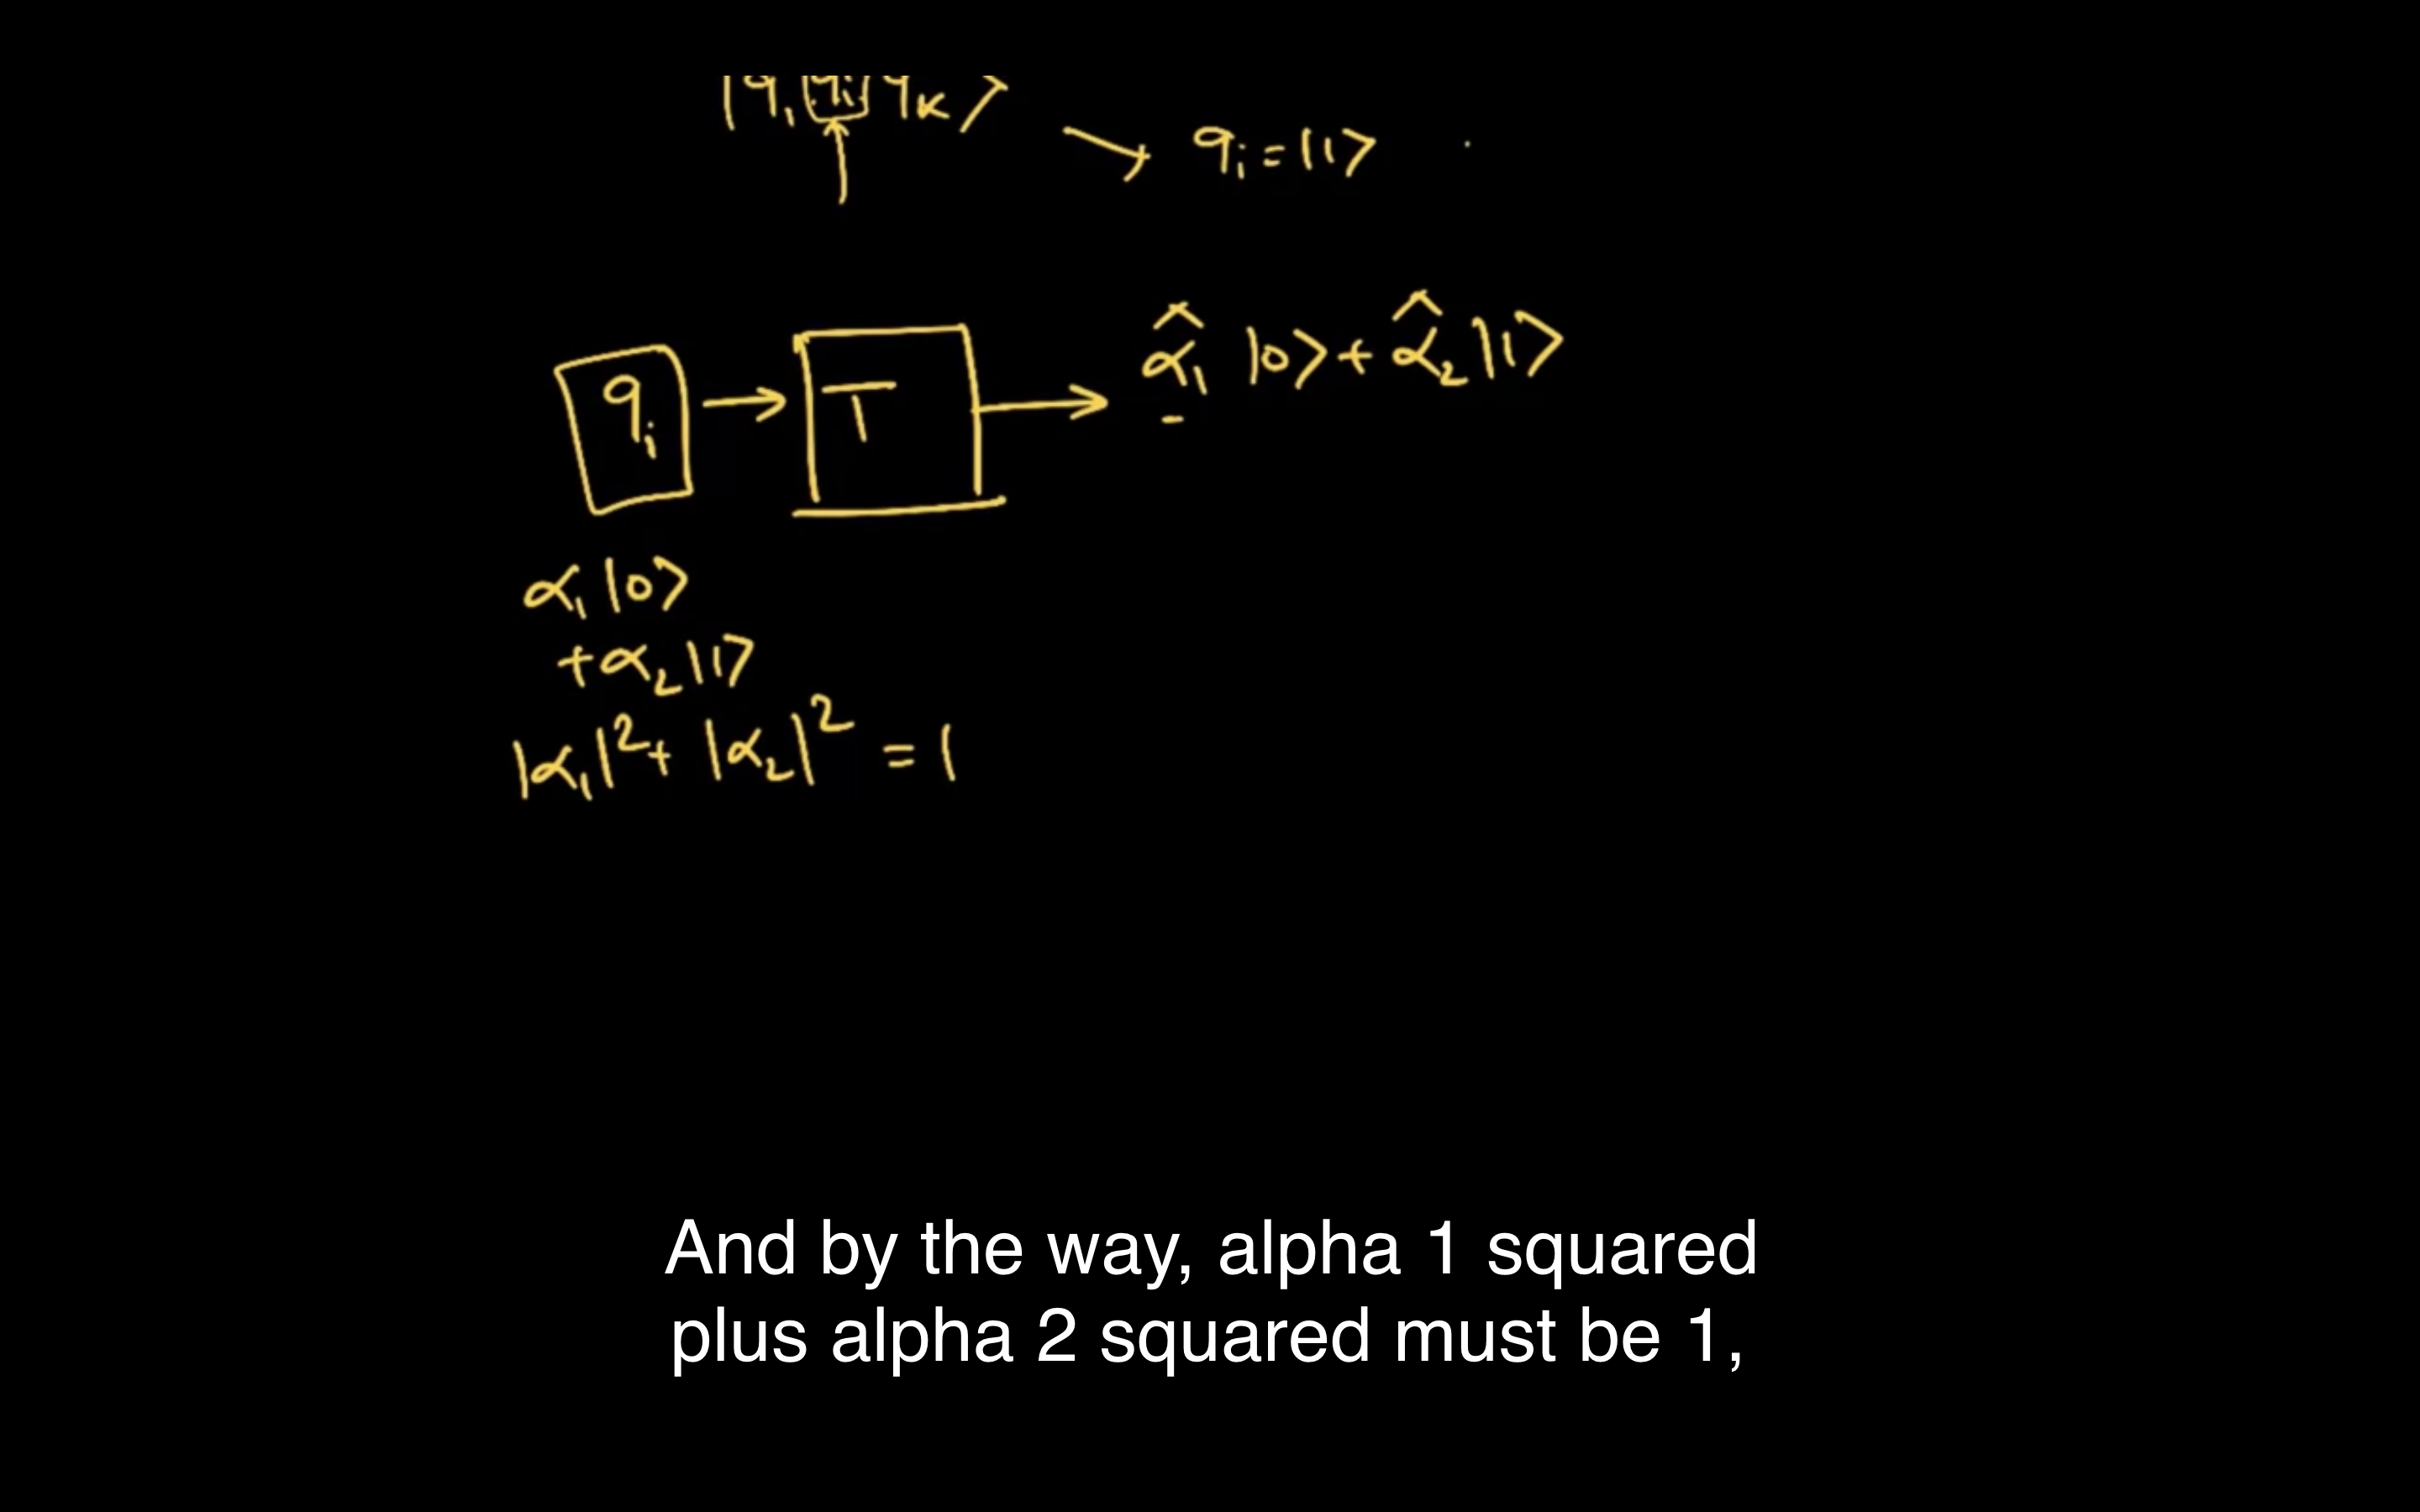 |q₁ qᵢ qₖ⟩
qᵢ = |1⟩
qᵢ → T → α̂₁ |0⟩ + α̂₂ |1⟩
α₁ |0⟩
+ α₂ |1⟩
|α₁|² + |α₂|² = 1
And by the way, alpha 1 squared
plus alpha 2 squared must be 1,